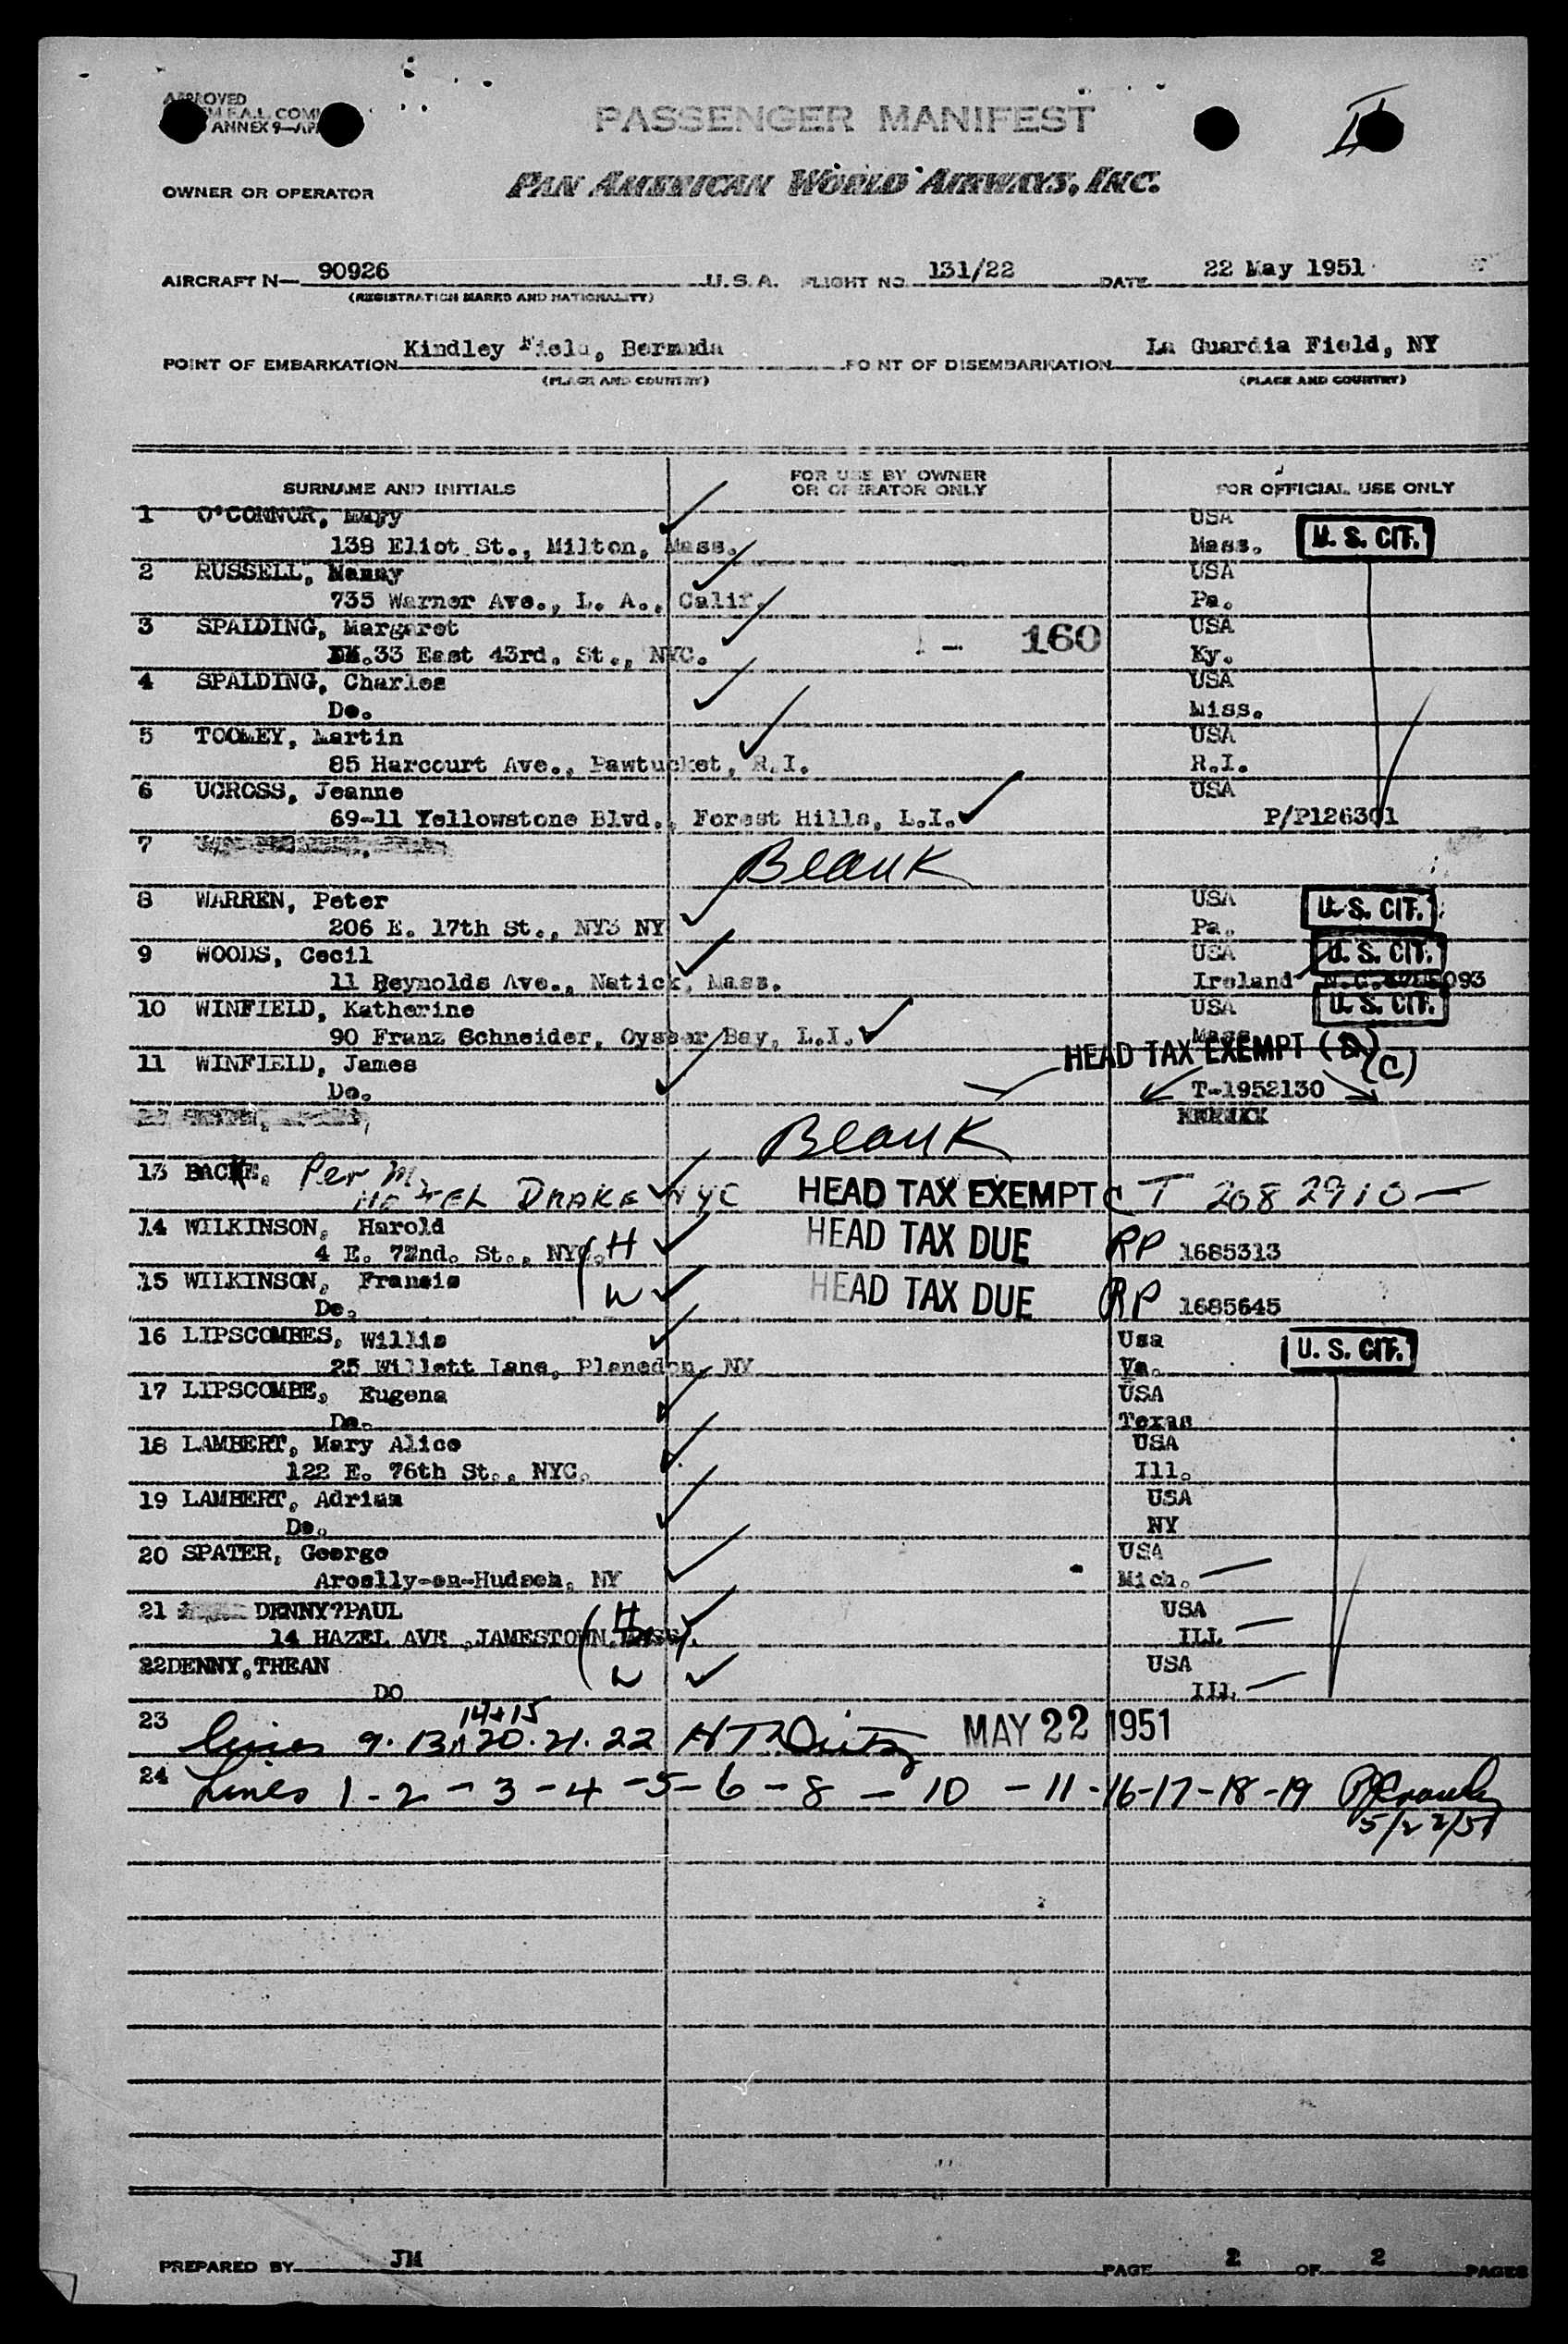 APPROVED
F.A.L. COM
ANNEX 9—AP
PASSENGER MANIFEST
II
OWNER OR OPERATOR PAN AMERICAN WORLD AIRWAYS, INC.
AIRCRAFT N— 90926 U.S.A. FLIGHT NO. 131/22 DATE 22 May 1951
(REGISTRATION MARKS AND NATIONALITY)
POINT OF EMBARKATION Kindley Field, Bermuda POINT OF DISEMBARKATION La Guardia Field, NY
(PLACE AND COUNTRY) (PLACE AND COUNTRY)
SURNAME AND INITIALS FOR USE BY OWNER OR OPERATOR ONLY FOR OFFICIAL USE ONLY
1 O'CONNOR, Mary USA
138 Eliot St., Milton, Mass. Mass. U. S. CIT.
2 RUSSELL, Nanny USA
735 Warner Ave., L. A., Calif. Pa.
3 SPALDING, Margaret USA
33 East 43rd. St., NYC. 160 Ky.
4 SPALDING, Charles USA
Do. Miss.
5 TOOMEY, Martin USA
85 Harcourt Ave., Pawtucket, R.I. R.I.
6 UCROSS, Jeanne USA
69-11 Yellowstone Blvd., Forest Hills, L.I. P/P126301
7 Blank
8 WARREN, Peter USA U. S. CIT.
206 E. 17th St., NY3 NY Pa.
9 WOODS, Cecil USA U. S. CIT.
11 Reynolds Ave., Natick, Mass. Ireland 093
10 WINFIELD, Katherine USA U. S. CIT.
90 Franz Schneider, Oyster Bay, L.I. Mass
11 WINFIELD, James HEAD TAX EXEMPT (C)
Do. T-1952130
Blank
13 BACKE, Per M.
HOTEL DRAKE NYC HEAD TAX EXEMPT C T 2082910—
14 WILKINSON, Harold HEAD TAX DUE
4 E. 72nd. St., NYC. H RP 1685313
15 WILKINSON, Francis HEAD TAX DUE
Do. W RP 1685645
16 LIPSCOMBES, Willis Usa U. S. CIT.
25 Willett Lane, Planedon, NY Va.
17 LIPSCOMBE, Eugena USA
Do. Texas
18 LAMBERT, Mary Alice USA
122 E. 76th St., NYC. Ill.
19 LAMBERT, Adrian USA
Do. NY
20 SPATER, George USA
Aroslly-on-Hudson, NY Mich.
21 DENNY?PAUL H USA
14 HAZEL AVE ,JAMESTOWN ILL
22DENNY,TREAN W USA
DO Ill
23 Lines 9. 13 14+15 20. 21. 22 MAY 22 1951
24 Lines 1 - 2 - 3 - 4 - 5 - 6 - 8 - 10 - 11 - 16-17-18-19
5/22/51
PREPARED BY JM PAGE 2 OF 2 PAGES